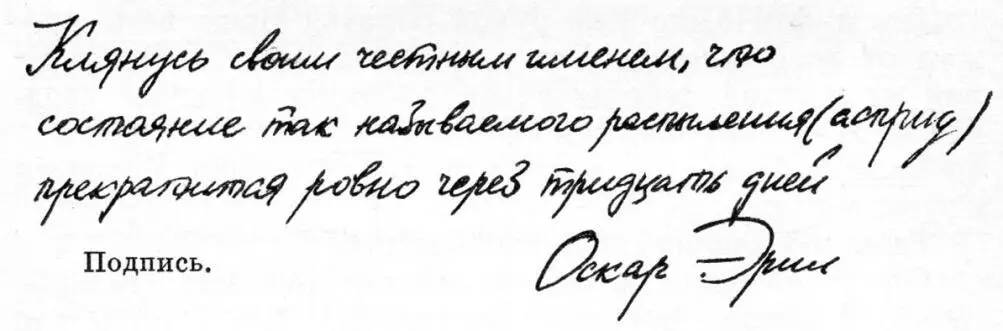 Клянусь своим честным именем, что
состояние так называемого распыления (асприд)
прекратится ровно через тридцать дней
Подпись. Оскар Эрил